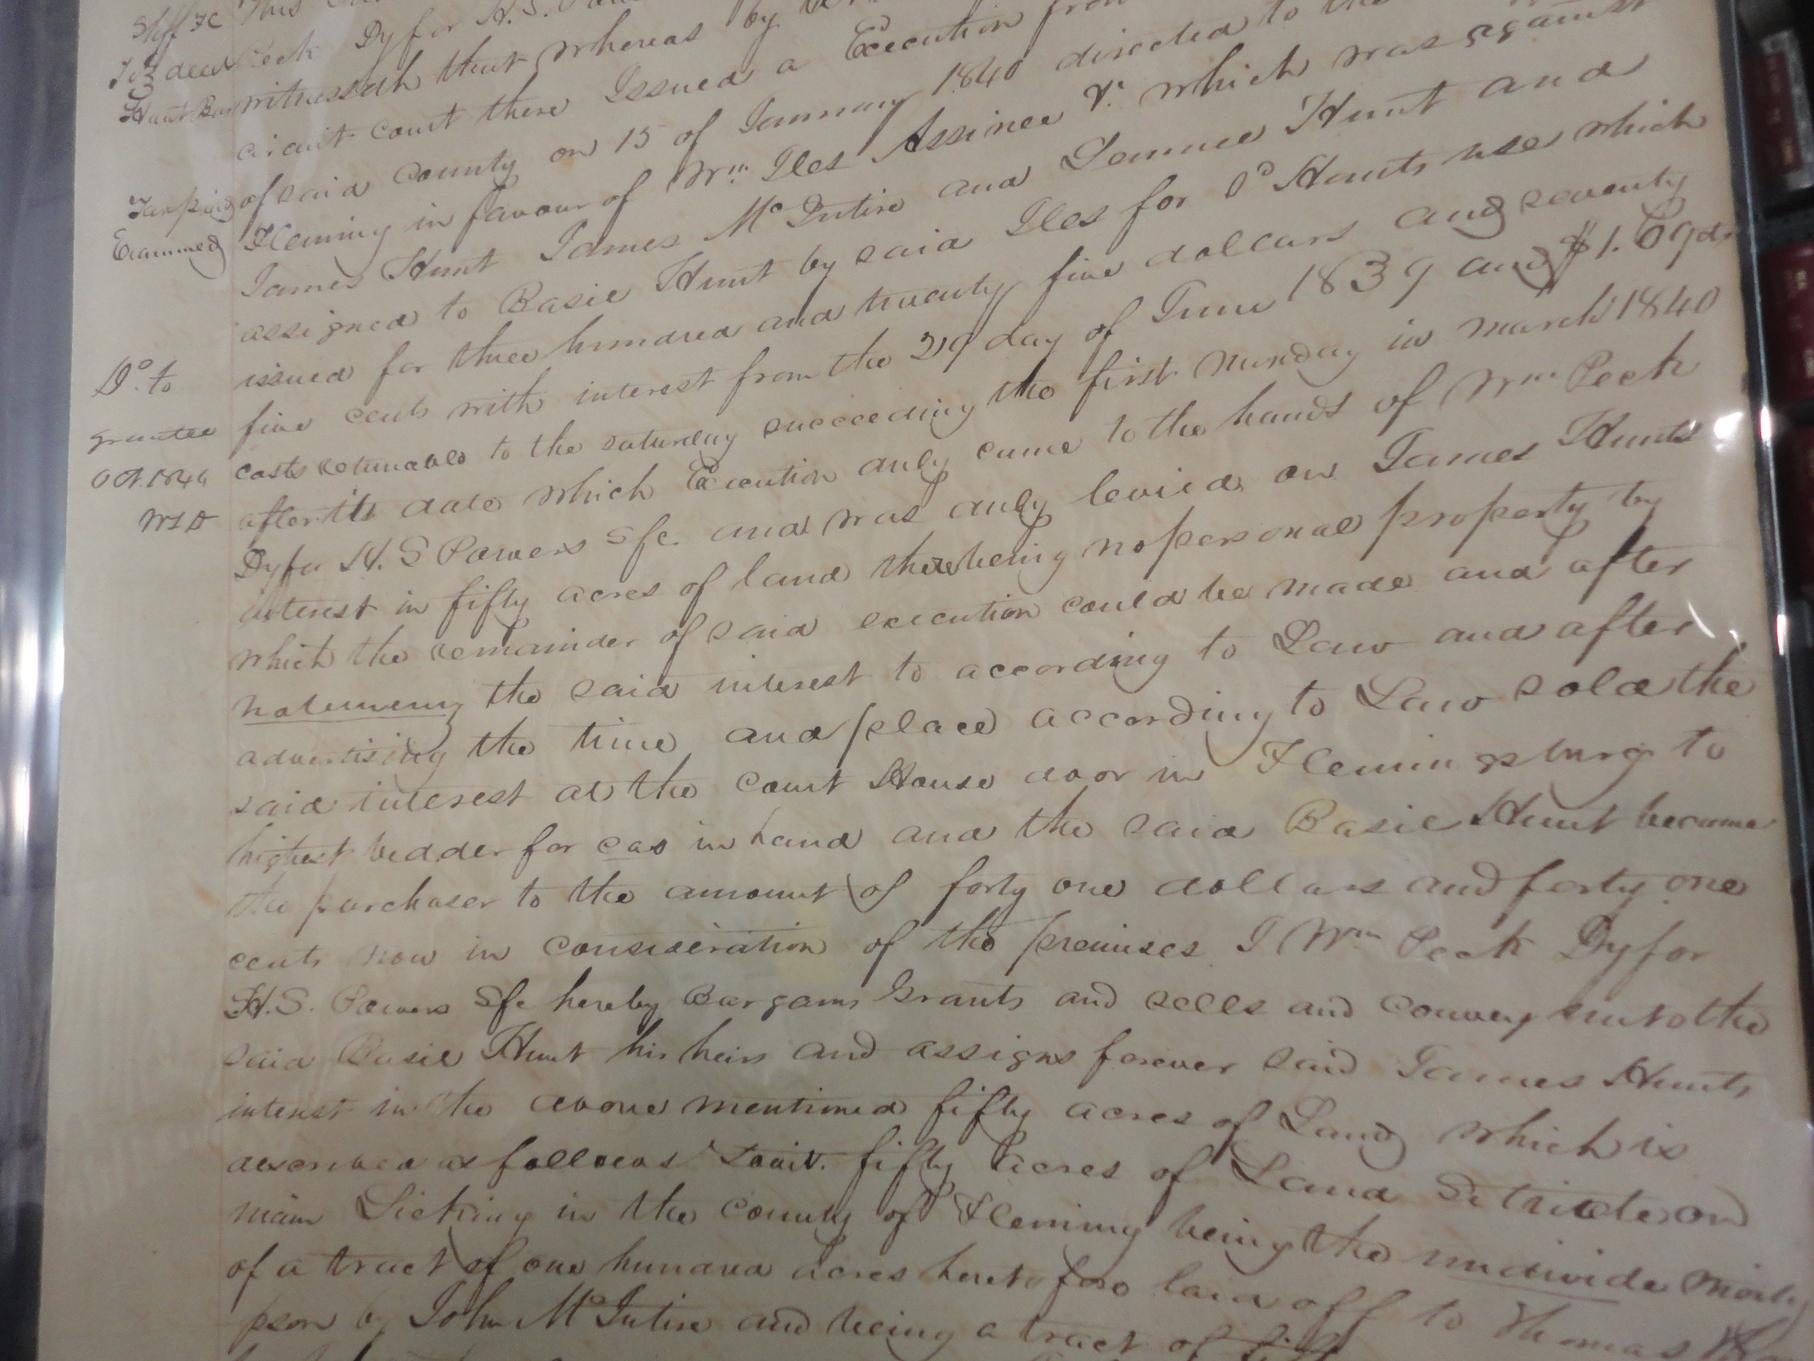 Shff &c
Peck Dy for H. S.
To } deed
Hunt Bar witnesseth that whereas by
circuit court there Issued a Execution from
of said County on 15 of January 1840 directed to the
Examined Fleming in favour of Wm Iles Assinee Vs which was against
James Hunt James McIntire and Hunt and
assigned to Basie Hunt by said Iles for sd Hunts use which
issued for three hundred and twenty five dollars and seventy
Do. to
five cents with interest from the 29 day of June 1839 and $1.69 cts
grantee
costs retunable to the saturday succeeding the first munday in march 1840
Oct. 1846
after its date which Execution duly came to the hands of Wm Peck
Dy for H. S Powers Sfc. and was duly levied on James Hunts
interest in fifty acres of land there being no personal property by
which the remainder of said execution could be made and after
the said interest to according to Law and after
advertising the time and place according to Law sold the
said interest at the Court House door in Flemingsburg to
highest bedder for cas in hand and the said Basie Hunt became
the purchaser to the amount of forty one dollars and forty one
cents now in consideration of the premises I Wm Peck Dy for
H. S. Powers Sfc hereby Bargains Grants and sells and convey unto the
said Basie Hunt his heirs and assigns forever said James Hunts
interest in the above mentioned fifty acres of Land which is
described as follows towit. fifty acres of Land Situate on
main Licking in the County of Fleming being the undivide
of a tract of one hundred acres heretofore laid off to Thomas
by John McIntire and being a tract of